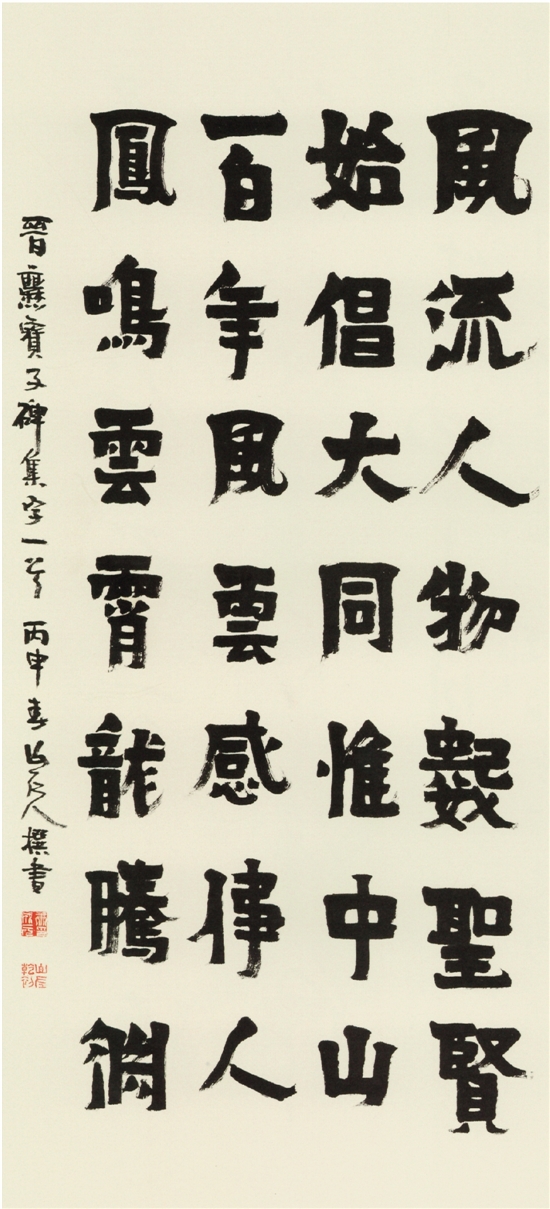 風流人物數聖賢
始倡大同惟中山
百年風雲感偉人
鳳鳴雲霄龍騰淵
晉爨寶子碑集字一首 丙申春 人撰書